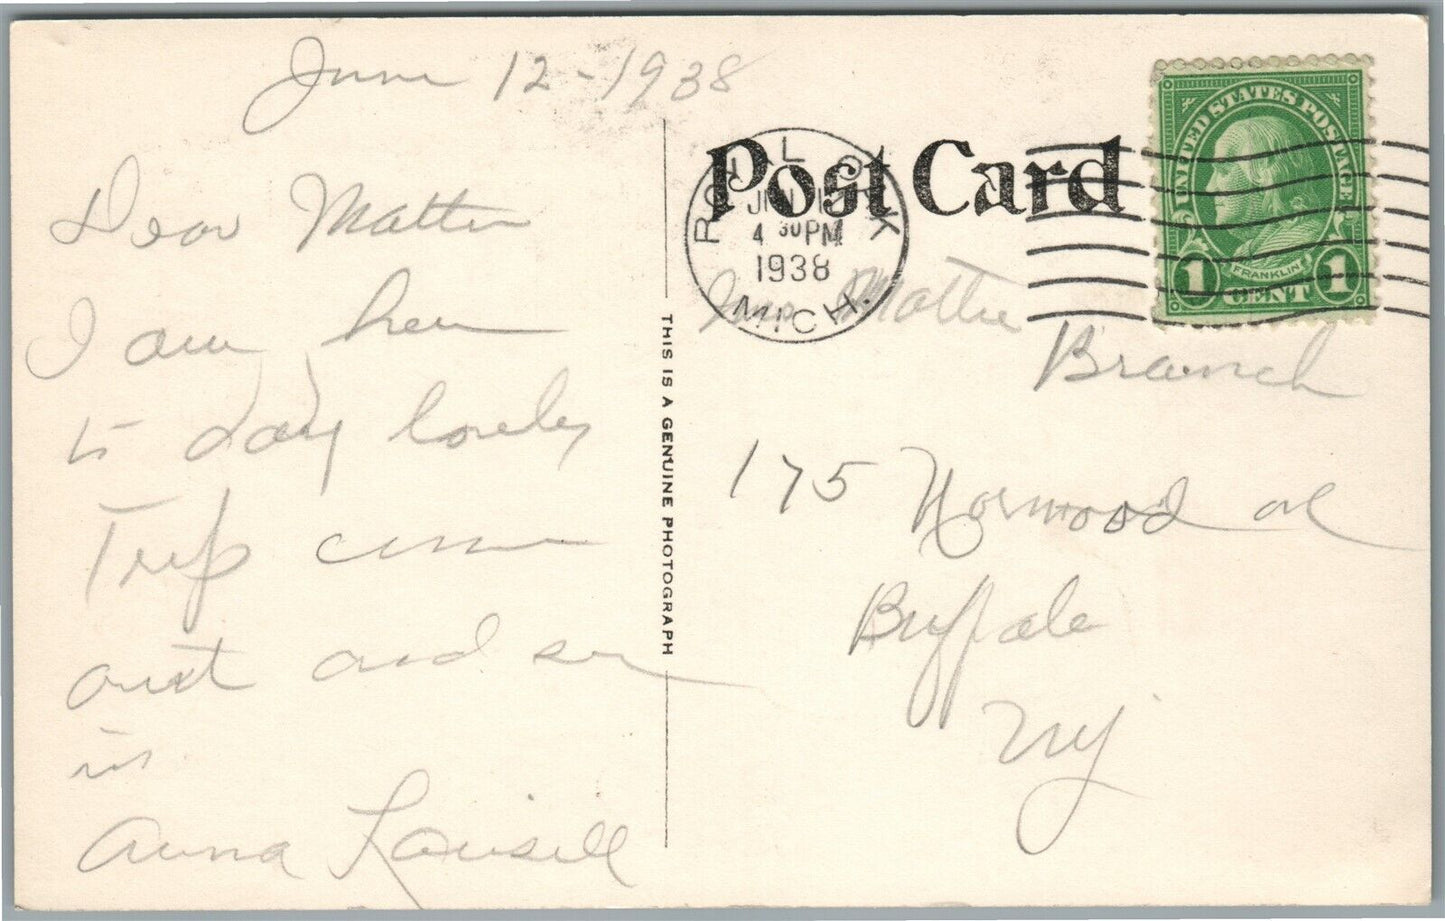 June 12 - 1938
Dear Mattie
I am here
to day lovely
Trip come
out and
in
Anna
THIS IS A GENUINE PHOTOGRAPH
Post Card
ROYAL OAK
JUN 1
4 30 PM
1938
MICH.
UNITED STATES POSTAGE
FRANKLIN
1 CENT 1
Mrs Mattie
Branch
175 Norwood av
Buffalo
NY